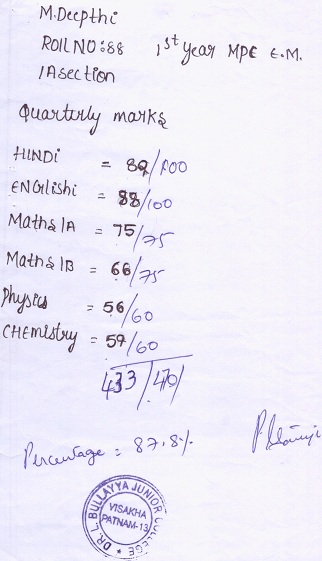 M.Deepthi
ROll NO:88 1st year MPC E.M.
1A section
Quarterly marks
HINDi = 89/100
ENGlishi = 88/100
Maths 1A = 75/75
Maths 1B = 66/75
Physics = 56/60
CHEMistry = 59/60
433/470
Percentage = 87.8%
DR. L. BULLAYYA JUNIOR COLLEGE
VISAKHA
PATNAM-13